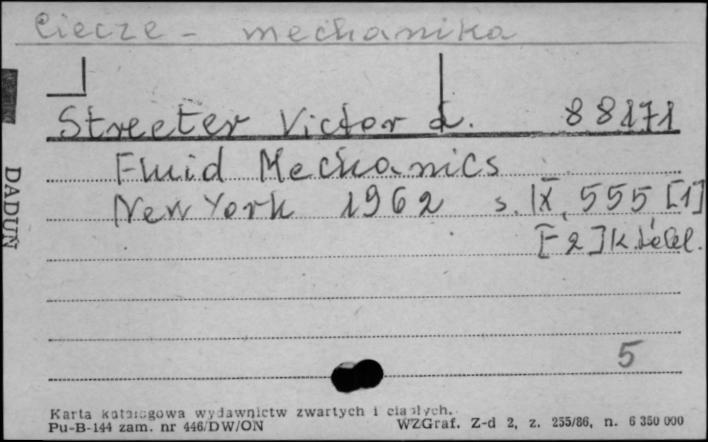 Ciecze - mechanika
Streeter Victor L. 88171
Fluid Mechanics
New York 1962 s. IX, 555 [1]
[2] k.
5
DADUŃ
Karta katalogowa wydawnictw zwartych i ciągłych.
Pu-B-144 zam. nr 446/DW/ON WZGraf. Z-d 2, z. 255/86, n. 6 350 000